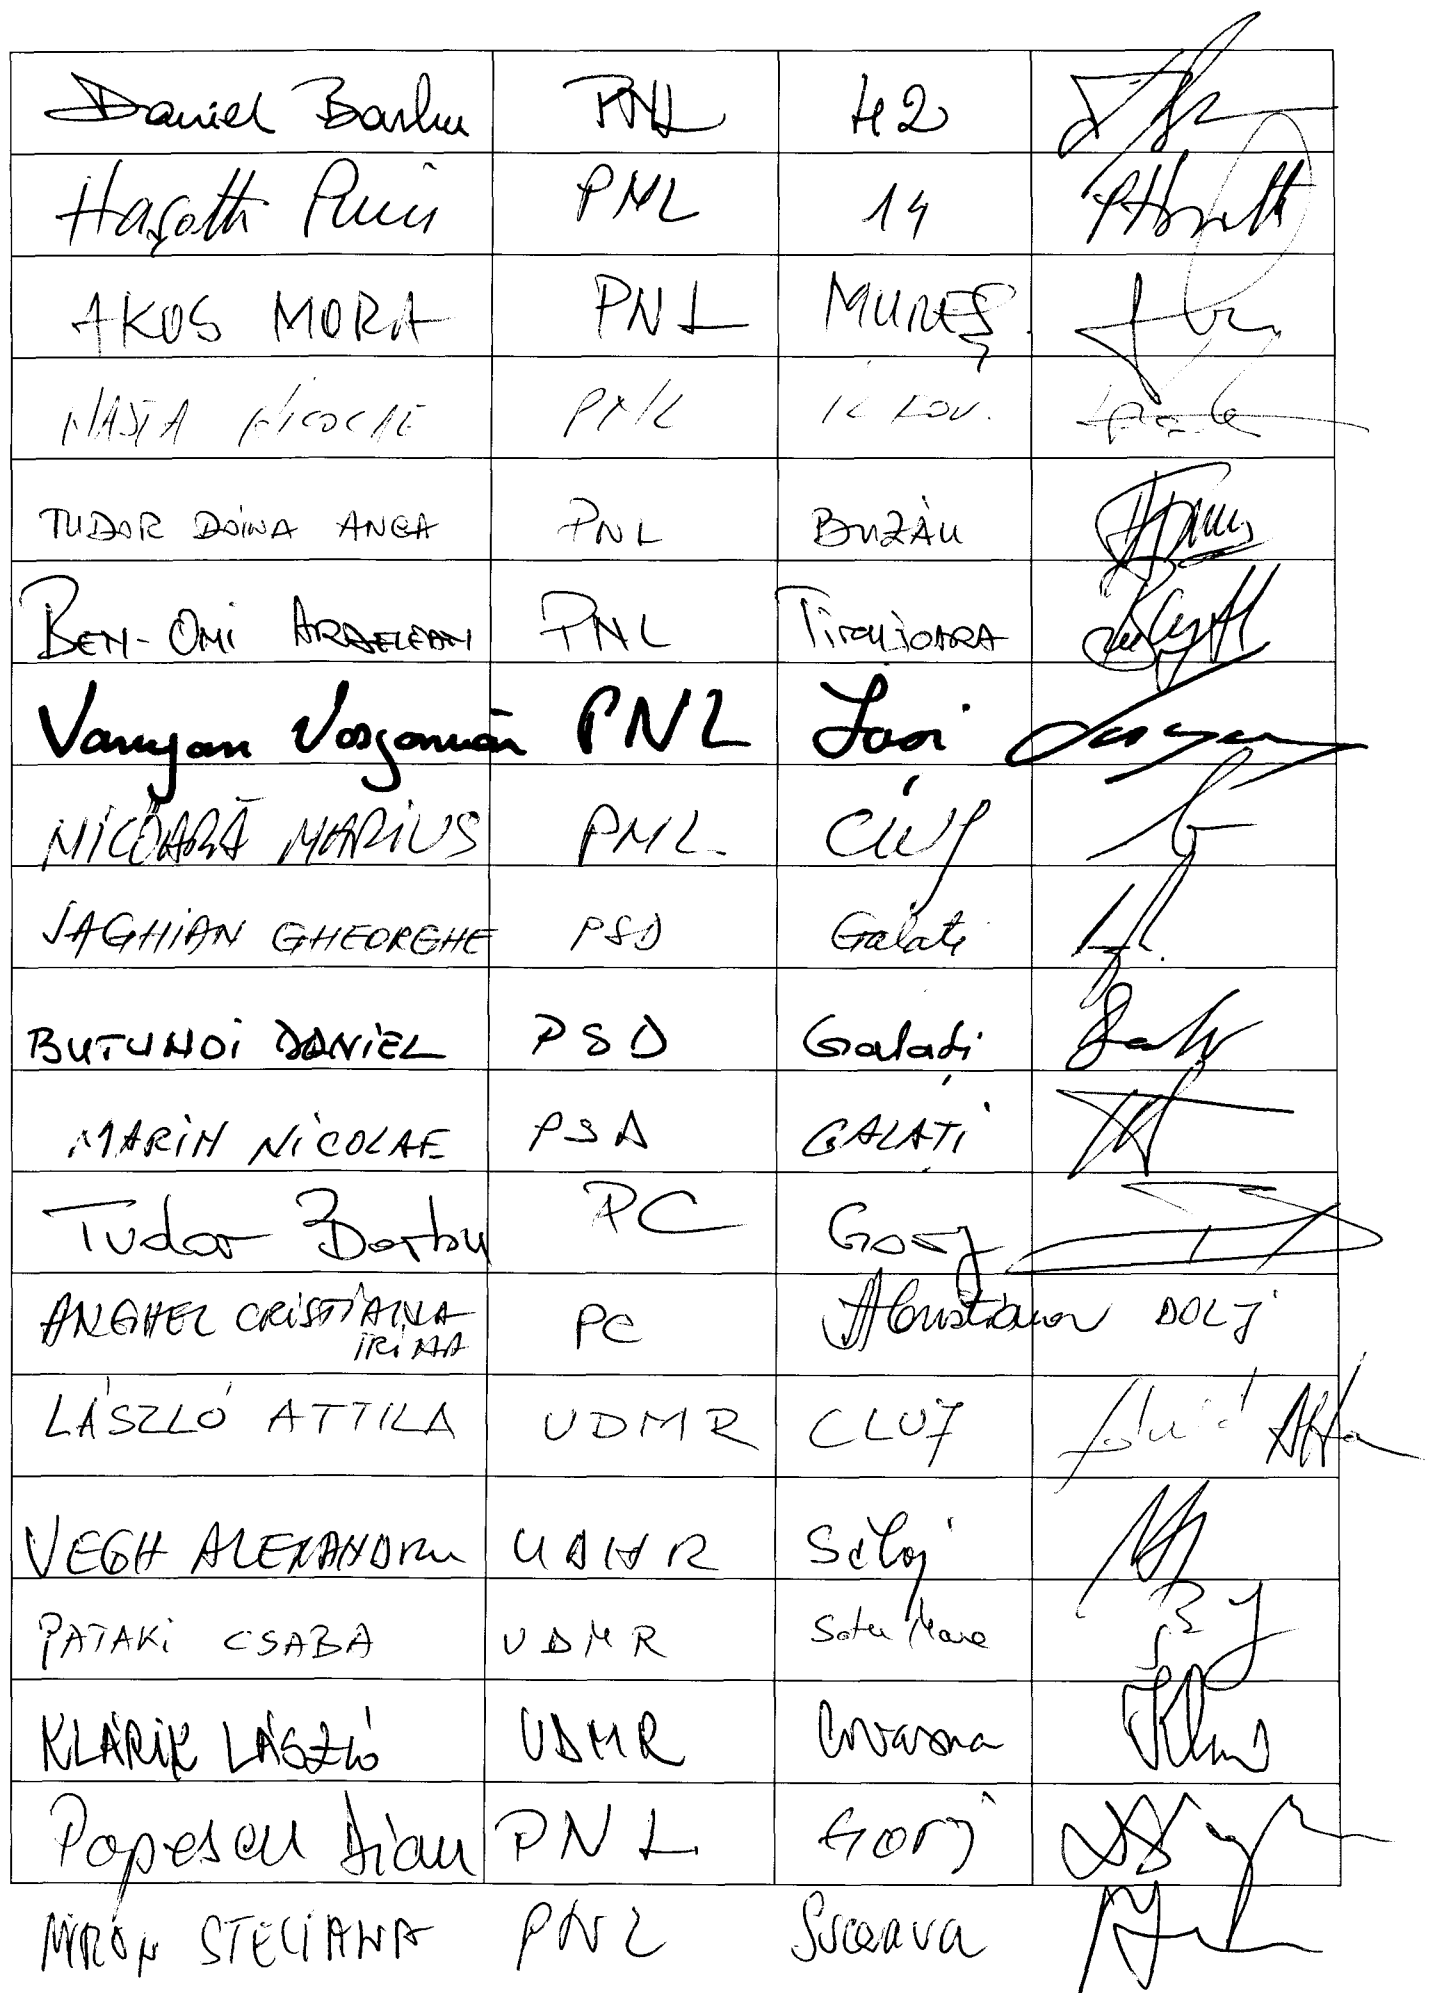 Daniel Barbu PNL 42
Hașotti Puiu PNL 14
AKOS MORA PNL MUREȘ
NASTA NICOLAE PNL ILFOV.
TUDOR DOINA ANCA PNL BUZĂU
BEN-ONI ARDELEAN PNL TIMIȘOARA
Varujan Vosganian PNL Iași
NICOARĂ MARIUS PNL CLUJ
SAGHIAN GHEORGHE PSD Galați
BUTUNOI DANIEL PSD Galați
MARIN NICOLAE PSD GALAȚI
Tudor Barbu PC Gorj
ANGHEL CRISTIANA PC DOLJ
IRINA
LÁSZLÓ ATTILA UDMR CLUJ
VEGH ALEXANDRU UDMR Sălaj
PATAKI CSABA UDMR Satu Mare
KLÁRIK LÁSZLÓ UDMR Covasna
Popescu Dian PNL GORJ
MIRON STELIANA PNL Suceava